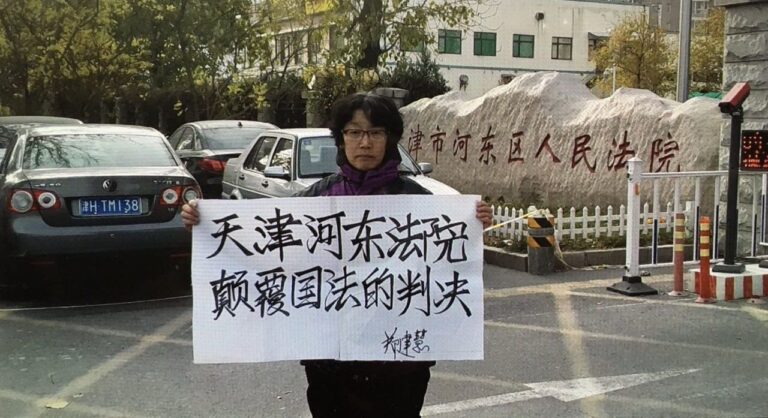 津市河东区人民法院
津H·TM138
天津河东法院
颠覆国法的判决
郑建慧